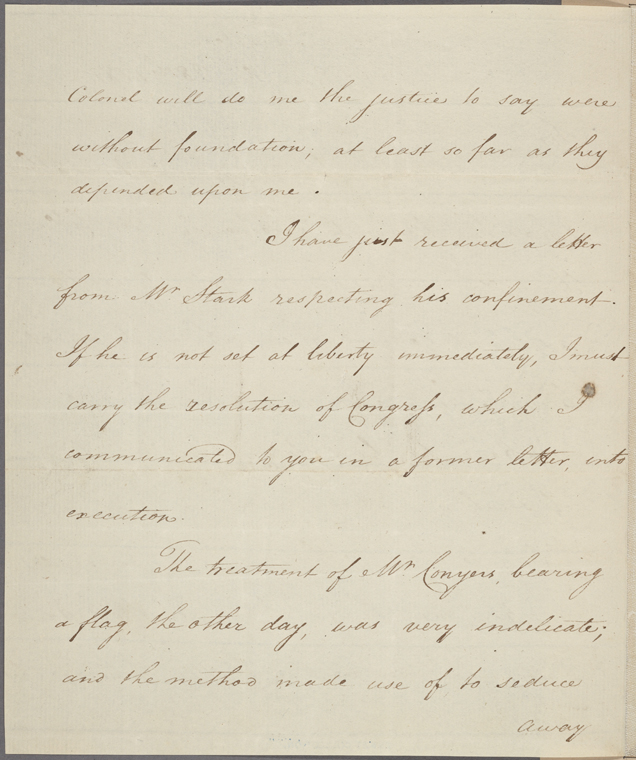 Colonel will do me the justice to say were
without foundation; at least so far as they
depended upon me.
I have just received a letter
from Mr Stark respecting his confinement.
If he is not set at liberty immediately, I must
carry the resolution of Congress, which I
communicated to you in a former letter, into
execution.
The treatment of Mr Conyers, bearing
a flag, the other day, was very indelicate;
and the method made use of to seduce
away